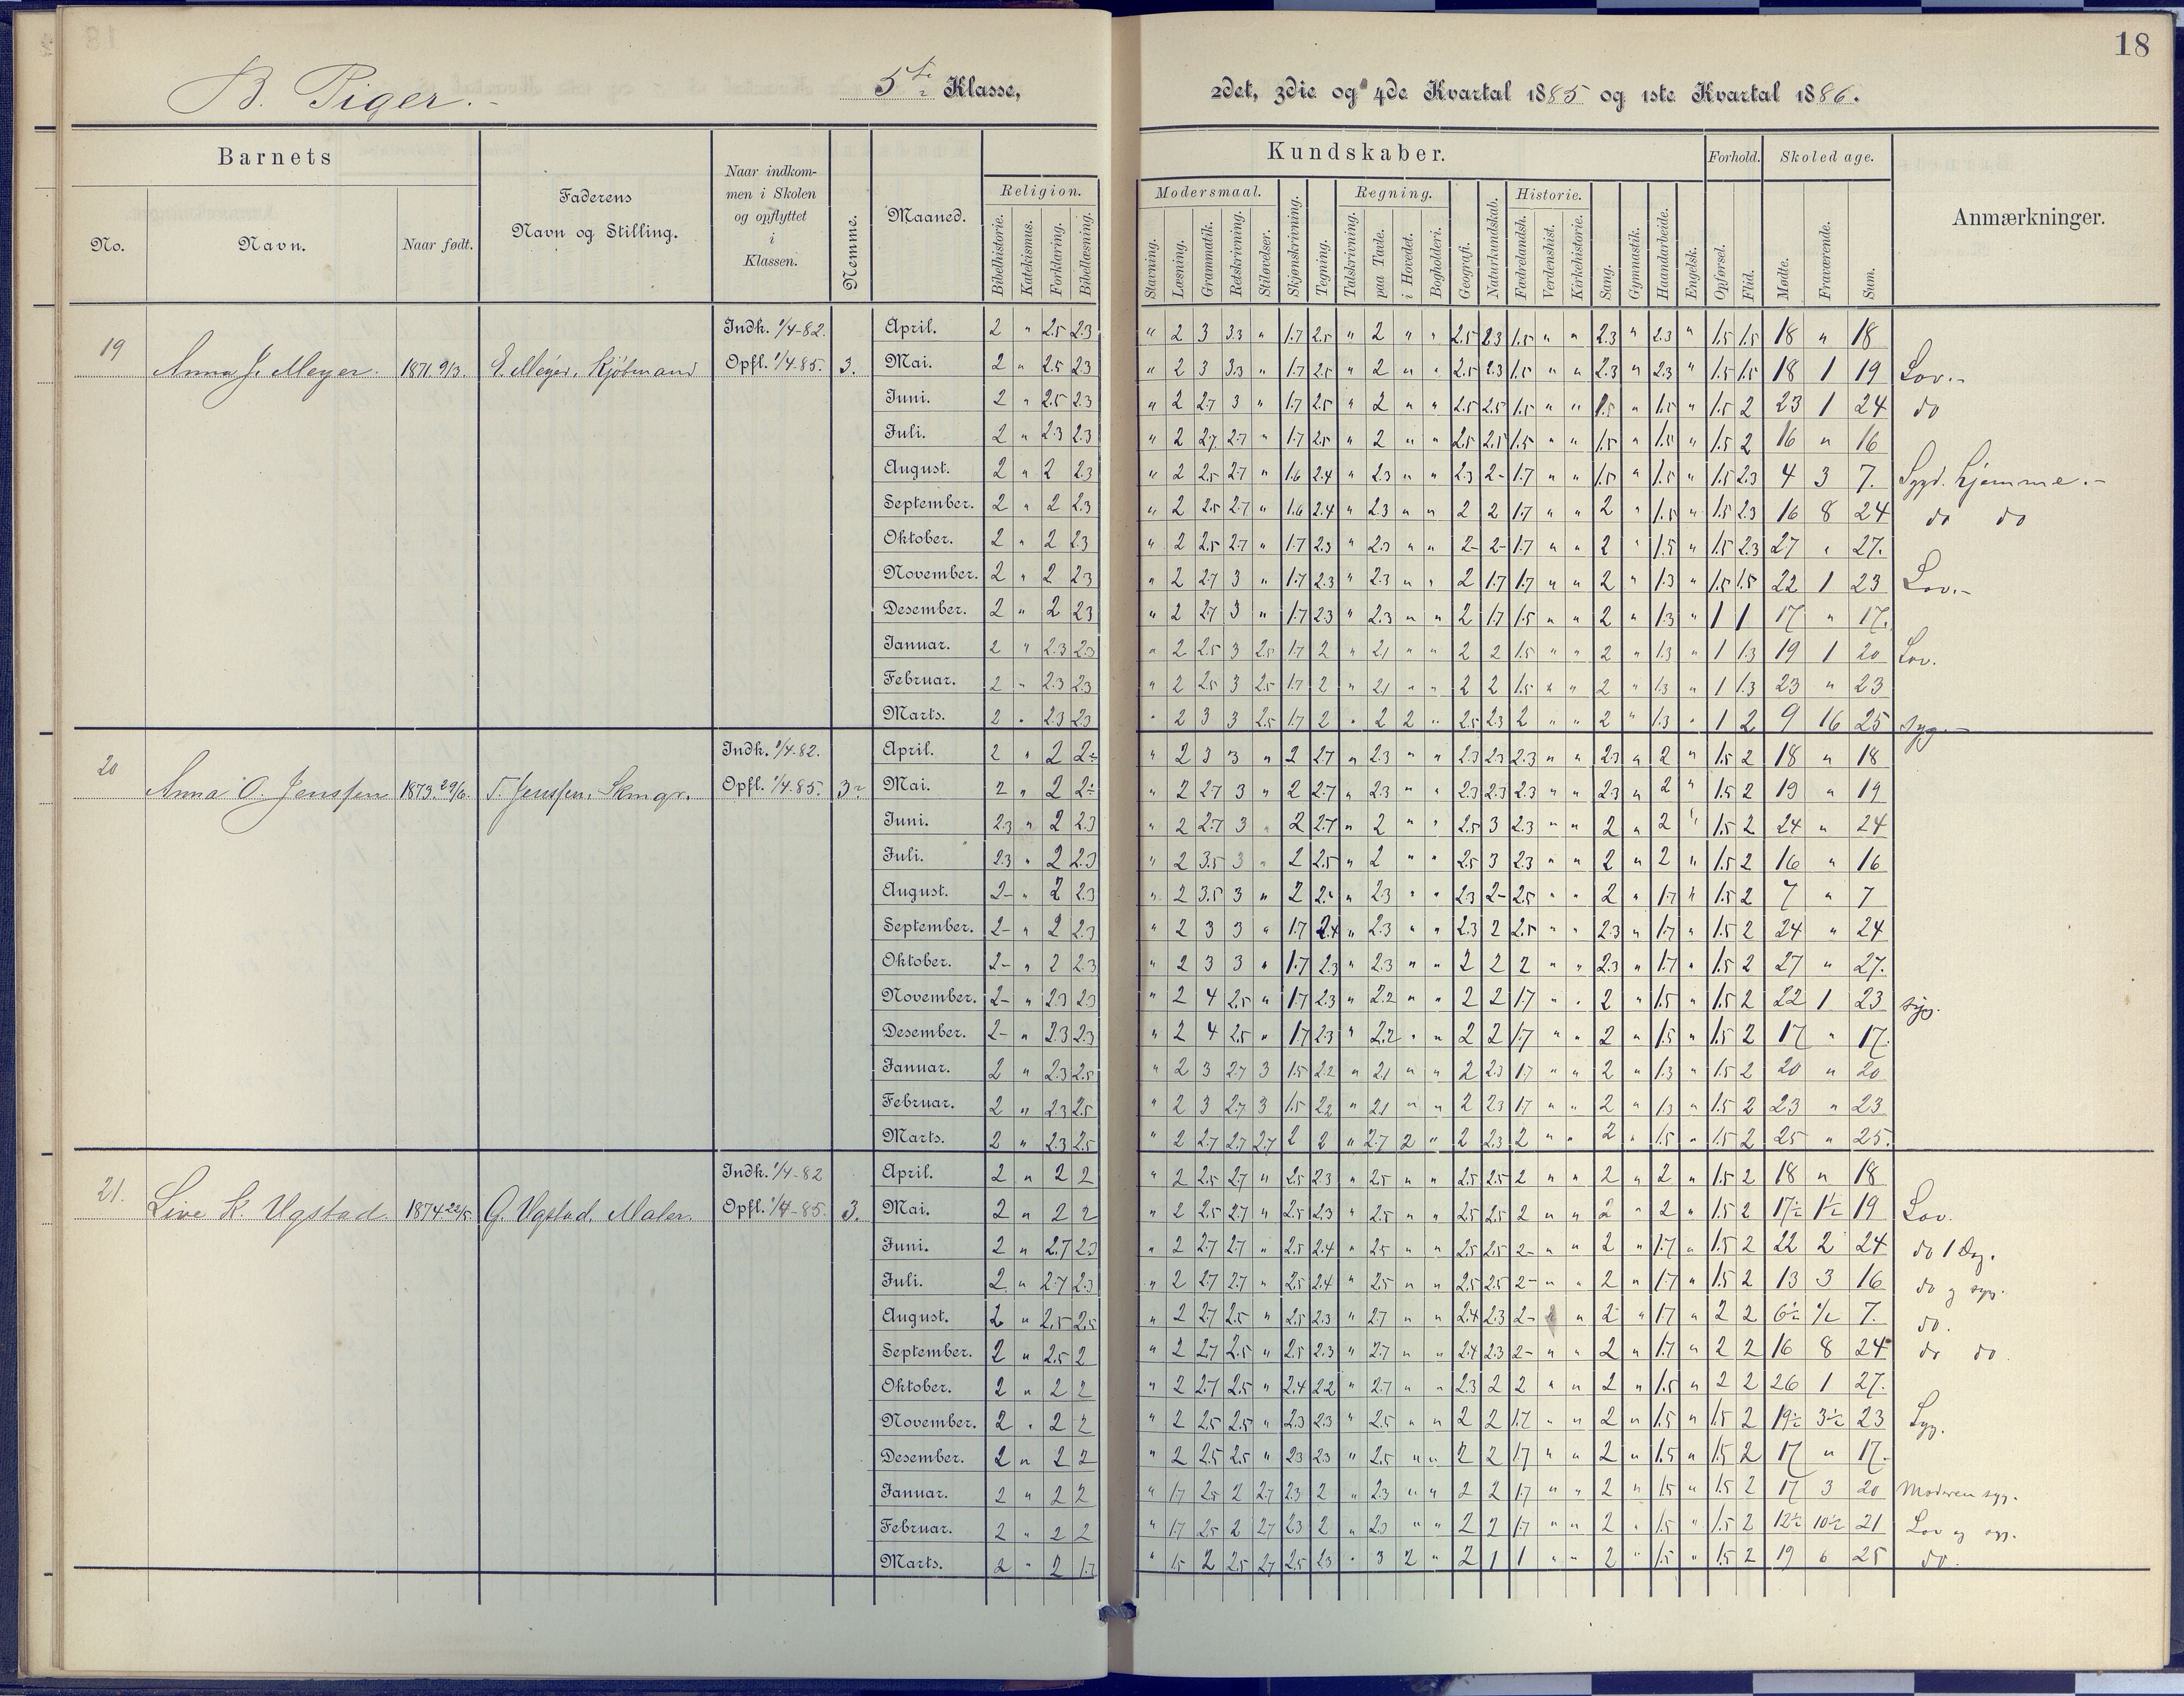 18
B. Piger.
5te Klasse,
2det, 3die og 4de Kvartal 1885 og 1ste Kvartal 1886.
Barnets
No.
Navn.
Naar født.
Faderens
Navn og Stilling.
Naar indkom-
men i Skolen
og opflyttet
i
Klassen.
Nemme.
Maaned.
Kundskaber.
Religion.
Bibelhistorie.
Katekismus.
Forklaring.
Bibellæsning.
Modersmaal.
Stavning.
Læsning.
Grammatik.
Retskrivning.
Stiløvelser.
Skjønskrivning.
Tegning.
Regning.
Talskrivning.
paa Tavle.
i Hovedet.
Bogholderi.
Geografi.
Naturkundskab.
Historie.
Fædrelandsh.
Verdenshist.
Kirkehistorie.
Sang.
Gymnastik.
Haandarbeide.
Engelsk.
Forhold.
Opførsel.
Flid.
Skoledage.
Mødte.
Fraværende.
Sum.
Anmærkninger.
19
Anna J. Meyer.
1871. 9/3.
E. Meyer, Kjøbmand
Indk. 1/4-82.
Opfl. 1/4.85.
3.
April. 2 " 2.5 2.3 " 2 3 3.3 " 1.7 2.5 " 2 " " 2.5 2.3 1.5 " " 2.3 " 2.3 " 1.5 1.5 18 " 18
Mai. 2 " 2.5 2.3 " 2 3 3.3 " 1.7 2.5 " 2 " " 2.5 2.3 1.5 " " 2.3 " 2.3 " 1.5 1.5 18 1 19 Lov.-
Juni. 2 " 2.5 2.3 " 2 2.7 3 " 1.7 2.5 " 2 " " 2.5 2.5 1.5 " " 1.5 " 1.5 " 1.5 2 23 1 24 do
Juli. 2 " 2.3 2.3 " 2 2.7 2.7 " 1.7 2.5 " 2 " " 2.5 2.5 1.5 " " 1.5 " 1.5 " 1.5 2 16 " 16
August. 2 " 2 2.3 " 2 2.5 2.7 " 1.6 2.4 " 2.3 " " 2.3 2- 1.7 " " 1.5 " 1.5 " 1.5 2.3 4 3 7. Sygd. hjemme.-
September. 2 " 2 2.3 " 2 2.5 2.7 " 1.6 2.4 " 2.3 " " 2 2 1.7 " " 2 " 1.5 " 1.5 2.3 16 8 24 do do
Oktober. 2 " 2 2.3 " 2 2.5 2.7 " 1.7 2.3 " 2.3 " " 2- 2- 1.7 " " 2 " 1.5 " 1.5 2.3 27 " 27.
November. 2 " 2 2.3 " 2 2.7 3 " 1.7 2.3 " 2.3 " " 2 1.7 1.7 " " 2 " 1.3 " 1.5 1.5 22 1 23 Lov.-
Desember. 2 " 2 2.3 " 2 2.7 3 " 1.7 2.3 " 2.3 " " 2 1.7 1.5 " " 2 " 1.3 " 1 1 17 " 17.
Januar. 2 " 2.3 2.3 " 2 2.5 3 2.5 1.7 2 " 2.1 " " 2 2 1.5 " " 2 " 1.3 " 1 1.3 19 1 20 Lov.
Februar. 2 " 2.3 2.3 " 2 2.5 3 2.5 1.7 2 " 2.1 " " 2 2 1.5 " " 2 " 1.3 " 1 1.3 23 " 23
Marts. 2 " 2.3 2.3 " 2 3 3 2.5 1.7 2 " 2 2 " 2.5 2.3 2 " " 2 " 1.3 " 1 2 9 16 25 syg.-
20
Anna O. Jenssen
1873. 29/6.
T. Jenssen, Skmgr.
Indk. 1/4-82.
Opfl. 1/4.85.
3-
April. 2 " 2 2- " 2 3 3 " 2 2.7 " 2.3 " " 2.3 2.3 2.3 " " 2.3 " 2 " 1.5 2 18 " 18
Mai. 2 " 2 2- " 2 2.7 3 " 2 2.7 " 2.3 " " 2.3 2.3 2.3 " " 2.3 " 2 " 1.5 2 19 " 19
Juni. 2.3 " 2 2.3 " 2 2.7 3 " 2 2.7 " 2 " " 2.5 3 2.3 " " 2 " 2 " 1.5 2 24 " 24
Juli. 2.3 " 2 2.3 " 2 3.5 3 " 2 2.5 " 2 " " 2.5 3 2.3 " " 2 " 2 " 1.5 2 16 " 16
August. 2- " 2 2.3 " 2 3.5 3 " 2 2.4 " 2.3 " " 2.3 2- 2.5 " " 2 " 1.7 " 1.5 2 7 " 7
September. 2- " 2 2.3 " 2 3 3 " 1.7 2.4 " 2.3 " " 2.3 2 2.5 " " 2.3 " 1.7 " 1.5 2 24 " 24
Oktober. 2- " 2 2.3 " 2 3 3 " 1.7 2.3 " 2.3 " " 2 2 2 " " 2.3 " 1.7 " 1.5 2 27 " 27.
November. 2- " 2.3 2.3 " 2 4 2.5 " 1.7 2.3 " 2.2 " " 2 2 1.7 " " 2 " 1.5 " 1.5 2 22 1 23 syg.
Desember. 2- " 2.3 2.3 " 2 4 2.5 " 1.7 2.3 " 2.2 " " 2 2 1.7 " " 2 " 1.5 " 1.5 2 17 " 17.
Januar. 2 " 2.3 2.5 " 2 3 2.7 3 1.5 2.2 " 2.1 " " 2 2.3 1.7 " " 2 " 1.3 " 1.5 2 20 " 20
Februar. 2 " 2.3 2.5 " 2 3 2.7 3 1.5 2.2 " 2.1 " " 2 2.3 1.7 " " 2 " 1.3 " 1.5 2 23 " 23
Marts. 2 " 2.3 2.5 " 2 2.7 2.7 2.7 2 2 " 2.7 2 " 2 2.3 2 " " 2 " 1.5 " 1.5 2 25 " 25.
21.
Live K. Ugstad.
1874 22/5.
G. Ugstad, Maler.
Indk. 1/4-82
Opfl. 1/4-85.
3.
April. 2 " 2 2 " 2 2.5 2.7 " 2.5 2.3 " 2.5 " " 2.5 2.5 2 " " 2 " 2 " 1.5 2 18 " 18
Mai. 2 " 2 2 " 2 2.5 2.7 " 2.5 2.3 " 2.5 " " 2.5 2.5 2 " " 2 " 2 " 1.5 2 17½ 1½ 19 Lov.
Juni. 2 " 2.7 2.3 " 2 2.7 2.7 " 2.5 2.4 " 2.5 " " 2.5 2.5 2- " " 2 " 1.7 " 1.5 2 22 2 24 do 1 Dag.
Juli. 2 " 2.7 2.3 " 2 2.7 2.7 " 2.5 2.4 " 2.5 " " 2.5 2.5 2- " " 2 " 1.7 " 1.5 2 13 3 16 do og syg.
August. 2 " 2.5 2.5 " 2 2.7 2.5 " 2.5 2.3 " 2.7 " " 2.4 2.3 2- " " 2 " 1.7 " 2 2 6½ ½ 7. do.
September. 2 " 2.5 2 " 2 2.7 2.5 " 2.5 2.3 " 2.7 " " 2.4 2.3 2- " " 2 " 1.7 " 2 2 16 8 24 do do.
Oktober. 2 " 2 2 " 2 2.7 2.5 " 2.4 2.2 " 2.7 " " 2.3 2 2 " " 2 " 1.5 " 2 2 26 1 27.
November. 2 " 2 2 " 2 2.5 2.5 " 2.3 2.3 " 2.5 " " 2 2 1.7 " " 2 " 1.5 " 1.5 2 19½ 3½ 23 Syg.
Desember. 2 " 2 2 " 2 2.5 2.5 " 2.3 2.3 " 2.5 " " 2 2 1.7 " " 2 " 1.5 " 1.5 2 17 " 17.
Januar. 2 " 2 2 " 1.7 2.5 2 2.7 2.3 2 " 2.3 " " 2 2 1.7 " " 2 " 1.5 " 1.5 2 17 3 20 Moderen syg.
Februar. 2 " 2 2 " 1.7 2.5 2 2.7 2.3 2 " 2.3 " " 2 2 1.7 " " 2 " 1.5 " 1.5 2 12½ 10½ 21 Lov og syg.
Marts. 2 " 2 1.7 " 1.5 2 2.5 2.7 2.5 2.3 " 3 2 " 2 1 1 " " 2 " 1.5 " 1.5 2 19 6 25 do.